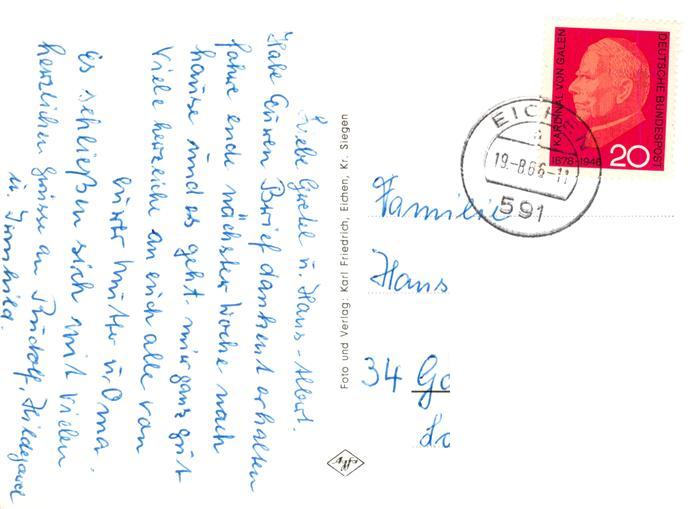 Liebe Gretel u. Hans-Albert.
Habe Euren Brief dankent erhalten
fahre ende nächster Woche nach
hause und es geht mir ganz gut
Viele herzliche an euch alle von
eurer Mutter u. Oma
Es schließen sich mit vielen
herzlichen Grüsse an Rudolf, Hildegard
u. Irmhild.
Foto und Verlag: Karl Friedrich, Eichen, Kr. Siegen
Agfa
KARDINAL VON GALEN
DEUTSCHE BUNDESPOST
1878-1946
20
EICHEN
a
19.-8.66-11
591
Familie
Hans
34 Gö